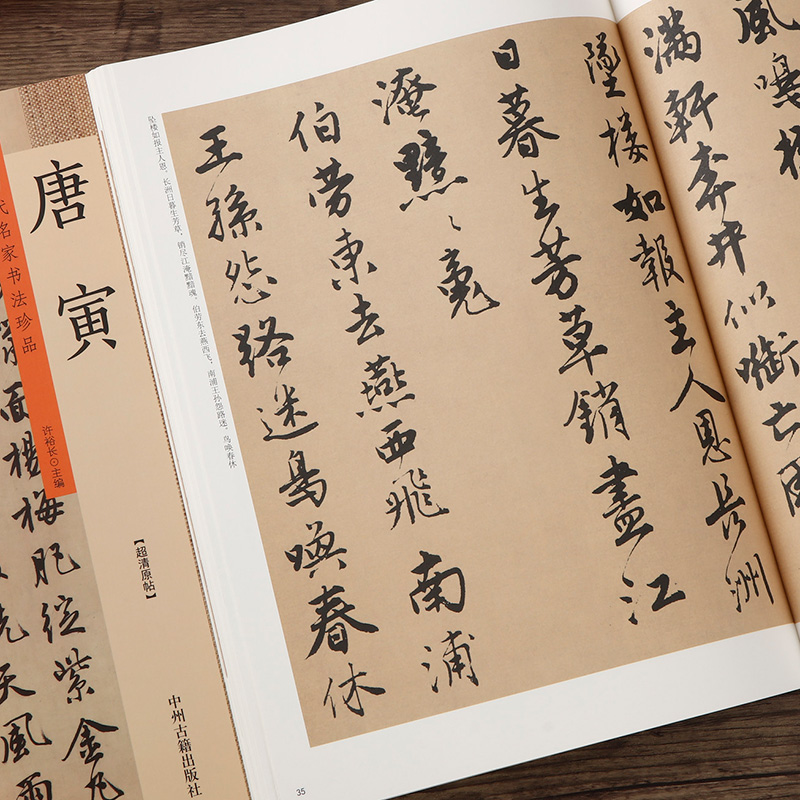 風鳴
滿軒奔井似銜亡
墜樓如報主人恩長洲
日暮生芳草銷盡江
淹黯〻魂
伯勞東去燕西飛南浦
王孫怨路迷鳥喚春休
坠楼如报主人恩。长洲日暮生芳草，销尽江淹黯黯魂。伯劳东去燕西飞，南浦王孙怨路迷。鸟唤春休
35
唐寅
代名家书法珍品
许裕长⊙主编
【超清原帖】
中州古籍出版社
面楊梅肥綻紫金丸
天風雨